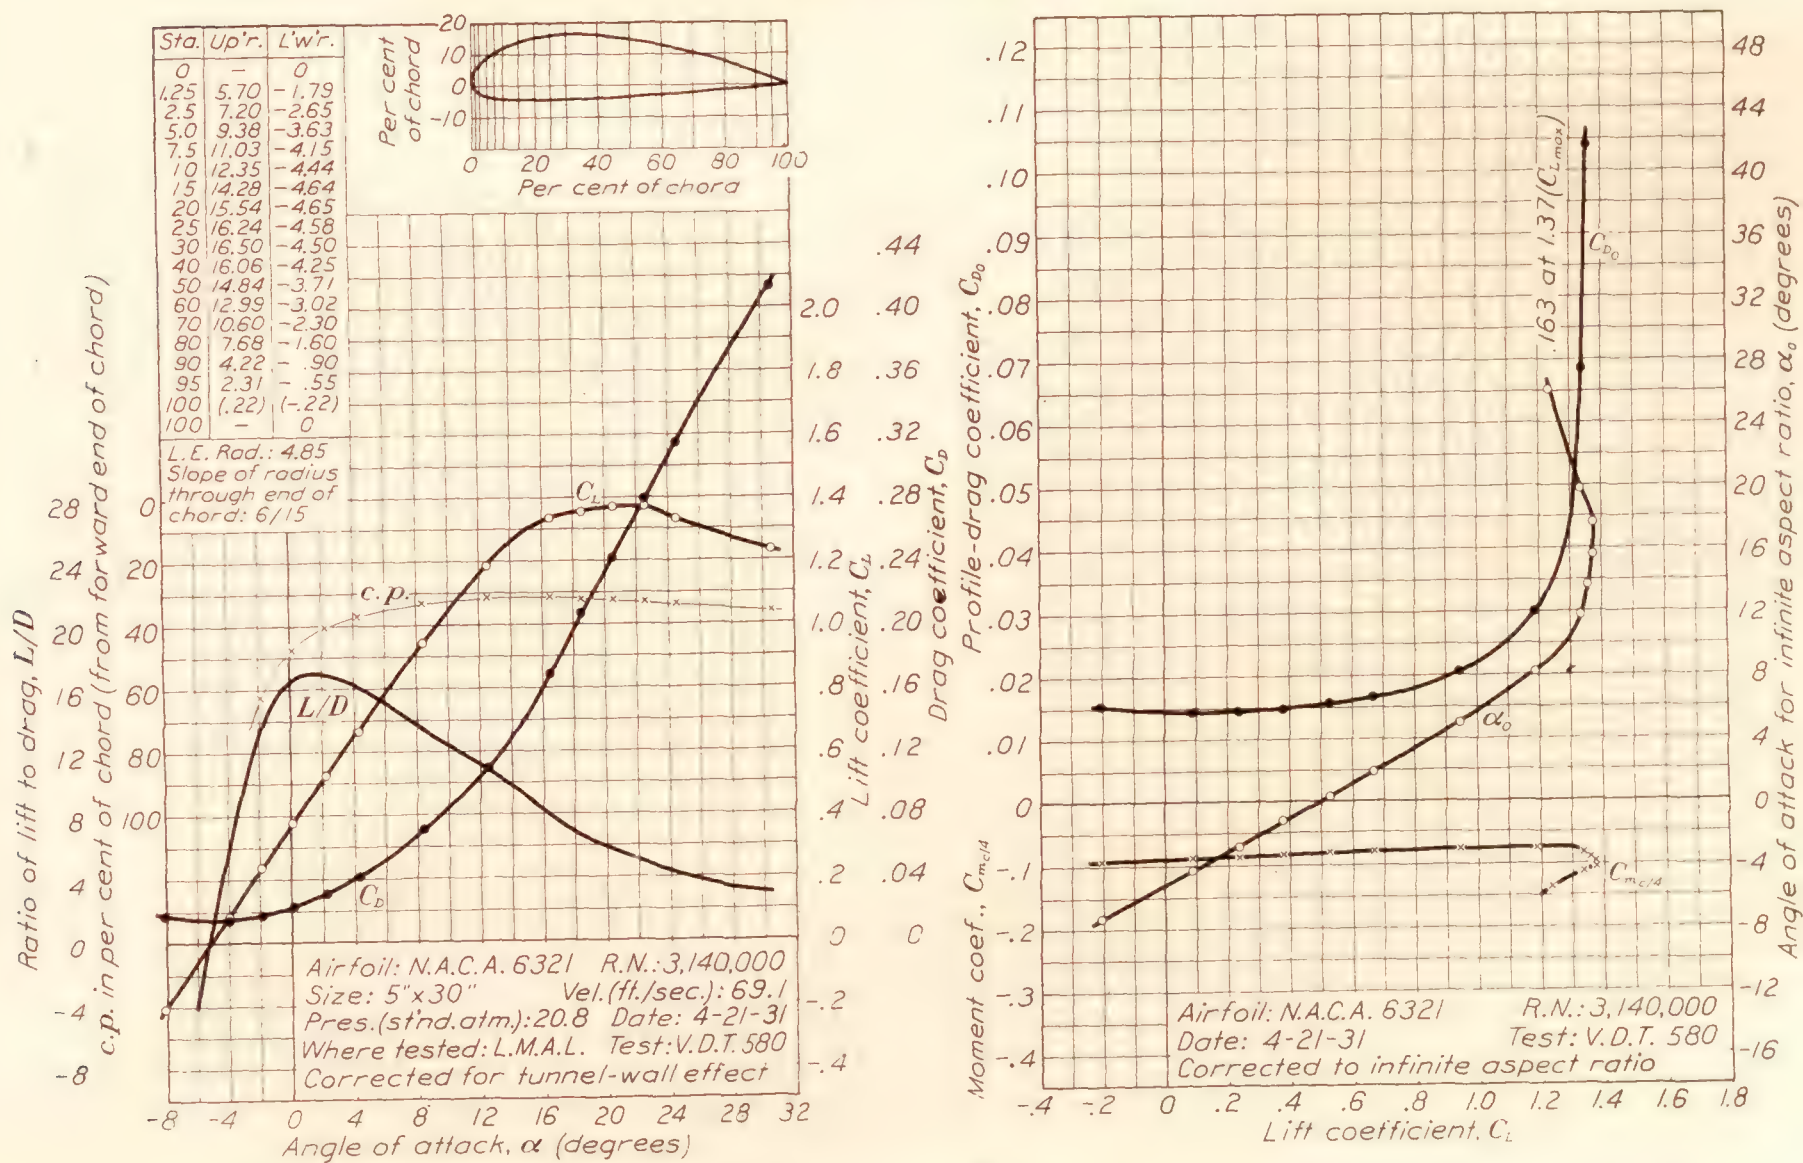 Sta. Up'r. L'w'r.
0 – 0
1.25 5.70 -1.79
2.5 7.20 -2.65
5.0 9.38 -3.63
7.5 11.03 -4.15
10 12.35 -4.44
15 14.28 -4.64
20 15.54 -4.65
25 16.24 -4.58
30 16.50 -4.50
40 16.06 -4.25
50 14.84 -3.71
60 12.99 -3.02
70 10.60 -2.30
80 7.68 -1.60
90 4.22 - .90
95 2.31 - .55
100 (.22) (-.22)
100 – 0
L.E. Rad.: 4.85
Slope of radius
through end of
chord: 6/15
Per cent
of chord
20
10
0
-10
0 20 40 60 80 100
Per cent of chord
Ratio of lift to drag, L/D
28
24
20
16
12
8
4
0
-4
-8
c.p. in per cent of chord (from forward end of chord)
0
20
40
60
80
100
C_L
c.p.
L/D
C_D
2.0
1.8
1.6
1.4
1.2
1.0
.8
.6
.4
.2
0
-.2
-.4
Lift coefficient, C_L
.44
.40
.36
.32
.28
.24
.20
.16
.12
.08
.04
0
Drag coefficient, C_D
Airfoil: N.A.C.A. 6321 R.N.: 3,140,000
Size: 5"x30" Vel.(ft./sec.): 69.1
Pres.(st'nd.atm.): 20.8 Date: 4-21-31
Where tested: L.M.A.L. Test: V.D.T. 580
Corrected for tunnel-wall effect
-8 -4 0 4 8 12 16 20 24 28 32
Angle of attack, α (degrees)
Profile-drag coefficient, C_D0
.12
.11
.10
.09
.08
.07
.06
.05
.04
.03
.02
.01
0
Moment coef., C_mc/4
-.1
-.2
-.3
-.4
.163 at 1.37 (C_Lmax)
C_D0
α₀
C_mc/4
48
44
40
36
32
28
24
20
16
12
8
4
0
-4
-8
-12
-16
Angle of attack for infinite aspect ratio, α₀ (degrees)
Airfoil: N.A.C.A. 6321 R.N.: 3,140,000
Date: 4-21-31 Test: V.D.T. 580
Corrected to infinite aspect ratio
-.4 -.2 0 .2 .4 .6 .8 1.0 1.2 1.4 1.6 1.8
Lift coefficient, C_L